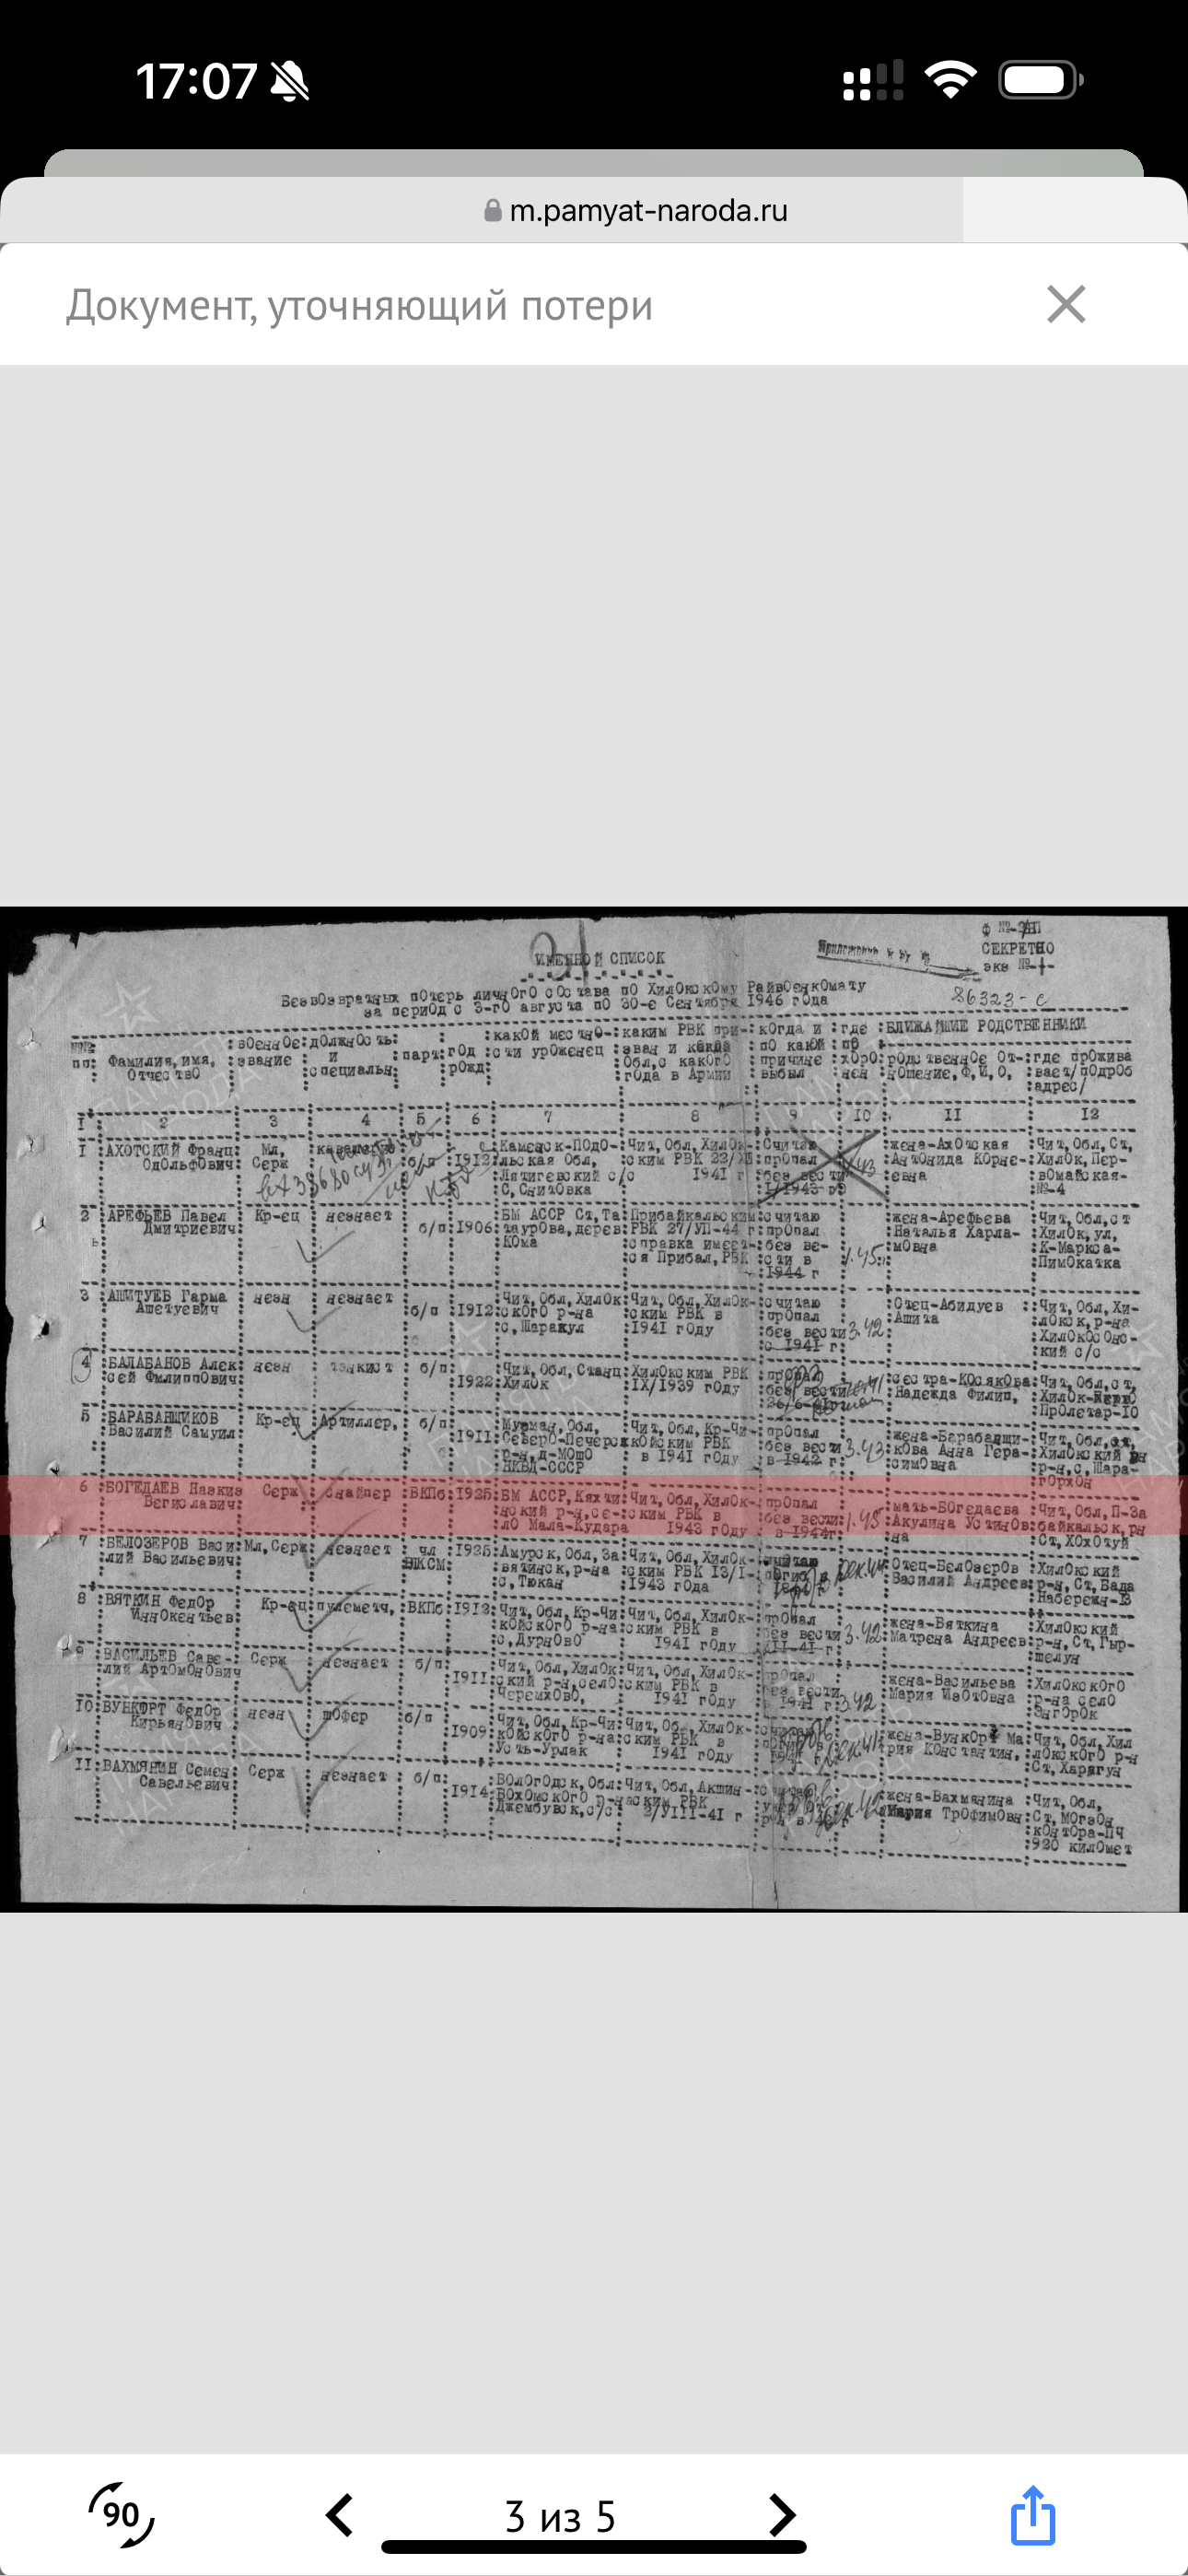 17:07
m.pamyat-naroda.ru
Документ, уточняющий потери
Ф №-2/БП
СЕКРЕТНО
экз №-1-
86323-с
ИМЕННОЙ СПИСОК
Безвозвратных потерь личного состава по Хилокскому Райвоенкомату
за период с 3-го августа по 30-е Сентября 1946 года
№№ пп: Фамилия, имя, Отчество : военное званиє : должность и специальн: парт: год рожд: какой местно-сти уроженец : каким РВК при-зван и какой Обл, с какого года в Армии : когда и по какой причине выбыл : где по хоро нен : БЛИЖАЙШИЕ РОДСТВЕННИКИ
родственное От-ношение, Ф, И, О, : где прожива вает/подроб адрес/
I 2 3 4 5 6 7 8 9 10 II 12
I :АХОТСКИЙ Франц Одольфович: Мл, Серж б/п 1912 Каменск-Подо-льская Обл, Лятигевский с/с С, Снитовка Чит, Обл, Хилок-ским РВК 22/ 1941 г Считаю пропал без вести 1/1943-г жена-Ахотская Антонида Корне-евна Чит, Обл, Ст, Хилок, Пер-вомайская-№-4
2 :АРЕФЬЕВ Павел Дмитриевич: Кр-ец незнает б/п 1906 БМ АССР Ст, Та таурова, дерев Кома Прибайкальским РВК 27/УП-44 г справка имеет-ся Прибал, РВК считаю пропал без ве-сти в 1944 г 1.45 жена-Арефьева Наталья Харла-мовна Чит, Обл, ст Хилок, ул, К-Маркса-Пимокатка
3 :АШИТУЕВ Гарма Ашетуевич незн незнает б/п 1912 Чит, Обл, Хилок ского р-на с, Шаракул Чит, Обл, Хилок-ским РВК в 1941 году считаю пропал без вести с 1941 г 3.42 Отец-Абидуев Ашита Чит, Обл, Хи-локск, р-на Хилокосонс-кий с/с
4 :БАЛАБАНОВ Алек сей Филиппович: незн танкист б/п 1922 Чит, Обл, Станц Хилок Хилокским РВК IX/1939 году пропал без вести сестра-Косякова Надежда Филип, Чит, Обл, ст, Хилок Пролетар-10
5 :БАРАБАНЩИКОВ Василий Самуил: Кр-ец Артиллер, б/п 1911 Мурман, Обл, Северо-Печерск р-н, д-Мошо НКВД-СССР Чит, Обл, Кр-Чи-койским РВК в 1941 году пропал без вести в 1942 г 3.43 жена-Барабанщи-кова Анна Гера-симовна Чит, Обл, Хилокский р-н, с, Шара-горхон
6 :БОГЕДАЕВ Вегиславич: Серж Снайпер ВКПб 1925 БМ АССР, Кяхти нский р-н, се-ло Мала-Кудара Чит, Обл, Хилок-ским РВК в 1943 году пропал без вести в 1944г 1.45 мать-Богедаева Акулина Устинов на Чит, Обл, П-За байкальск, рн Ст, Хохотуй
7 :БЕЛОЗЕРОВ Васи лий Васильевич: Мл, Серж незнает чл ВЛКСМ 1925 Амурск, Обл, За вятинск, р-на с, Тюкан Чит, Обл, Хилок-ским РВК 13/I-1943 года Отец-Белозеров Василий Андреев Хилокский р-н, Ст, Бада Набережн-13
8 :ВЯТКИН Федор Иннокентьев: Кр-ец пулеметч, ВКПб 1912 Чит, Обл, Кр-Чи койского р-на с, Дурново Чит, Обл, Хилок-ским РВК в 1941 году пропал без вести XII-41 г 3.42 жена-Вяткина Матрена Андреев Хилокский р-н, Ст, Гыр-шелун
9 :ВАСИЛЬЕВ Саве-лий Артомонович Серж незнает б/п 1911 Чит, Обл, Хилок ский р-н, село Черемхово, Чит, Обл, Хилок-ским РВК в 1941 году пропал без вести в 1941 г 3.42 жена-Васильева Мария Изотовна Хилокского р-на село Энгорок
10 :ВУНКОРТ Федор Кирьянович незн шофер б/п 1909 Чит, Обл, Кр-Чи койского р-на Усть-Урлак Чит, Обл, Хилок-ским РВК в 1941 году жена-Вункорт Ма рия Константин, Чит, Обл, Хил локского р-н Ст, Харагун
II :ВАХМЯНИН Семен Савельевич: Серж незнает б/п 1914 Вологодск, Обл Вохомского р-на Джембувск, с/с Чит, Обл, Акшин-ским РВК 3/УIII-41 г жена-Вахмянина Мария Трофимовн Чит, Обл, Ст, Могзон контора-ПЧ 920 километ
90
3 из 5